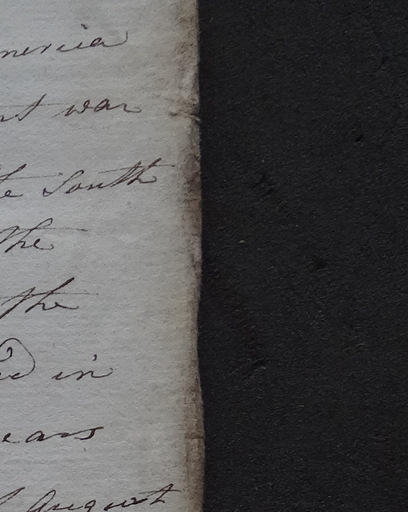 merica
nt war
te South
the
the
ed in
ears
August